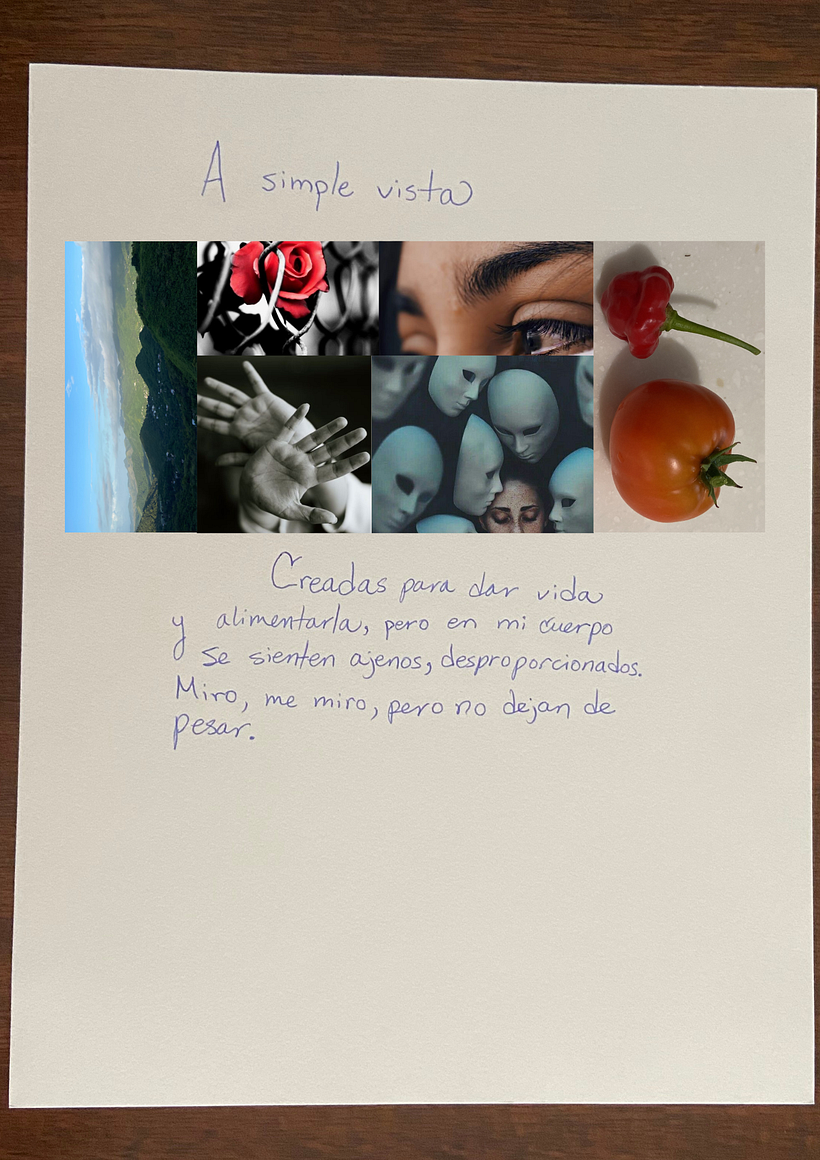 A simple vista
Creadas para dar vida
y alimentarla, pero en mi cuerpo
se sienten ajenos, desproporcionados.
Miro, me miro, pero no dejan de
pesar.